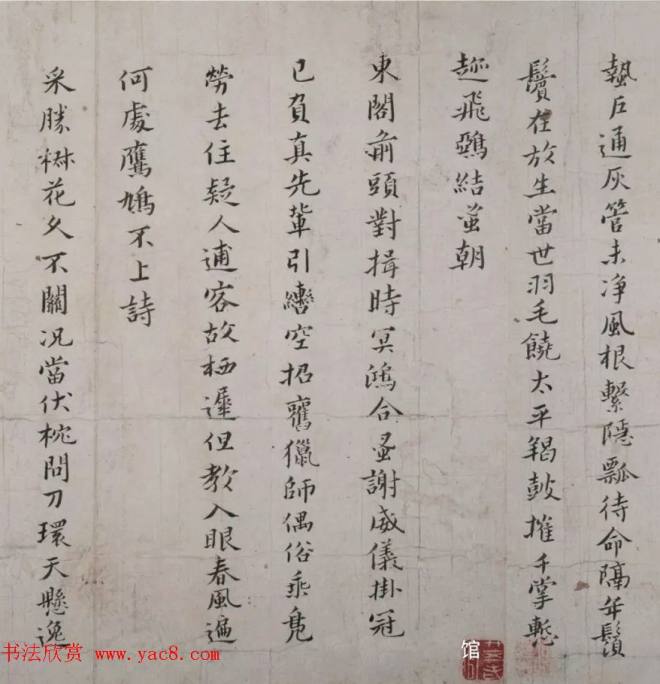 蟄戶通灰管未淨風根繫隱瓢待命隔年鬚
鬢在放生當世羽毛饒太平羯鼓摧千掌慙
趂飛鵶結蚤朝
東閣前頭對揖時冥鴻合蚤謝威儀掛冠
已負真先輩引轡空招舊獵師偶俗乘鳧
勞去住疑人逋客故栖遲但教入眼春風遍
何處鷹鳩不上詩
采勝椒花久不關況當伏枕問刀環天懸逸
书法欣赏 www.yac8.com
馆